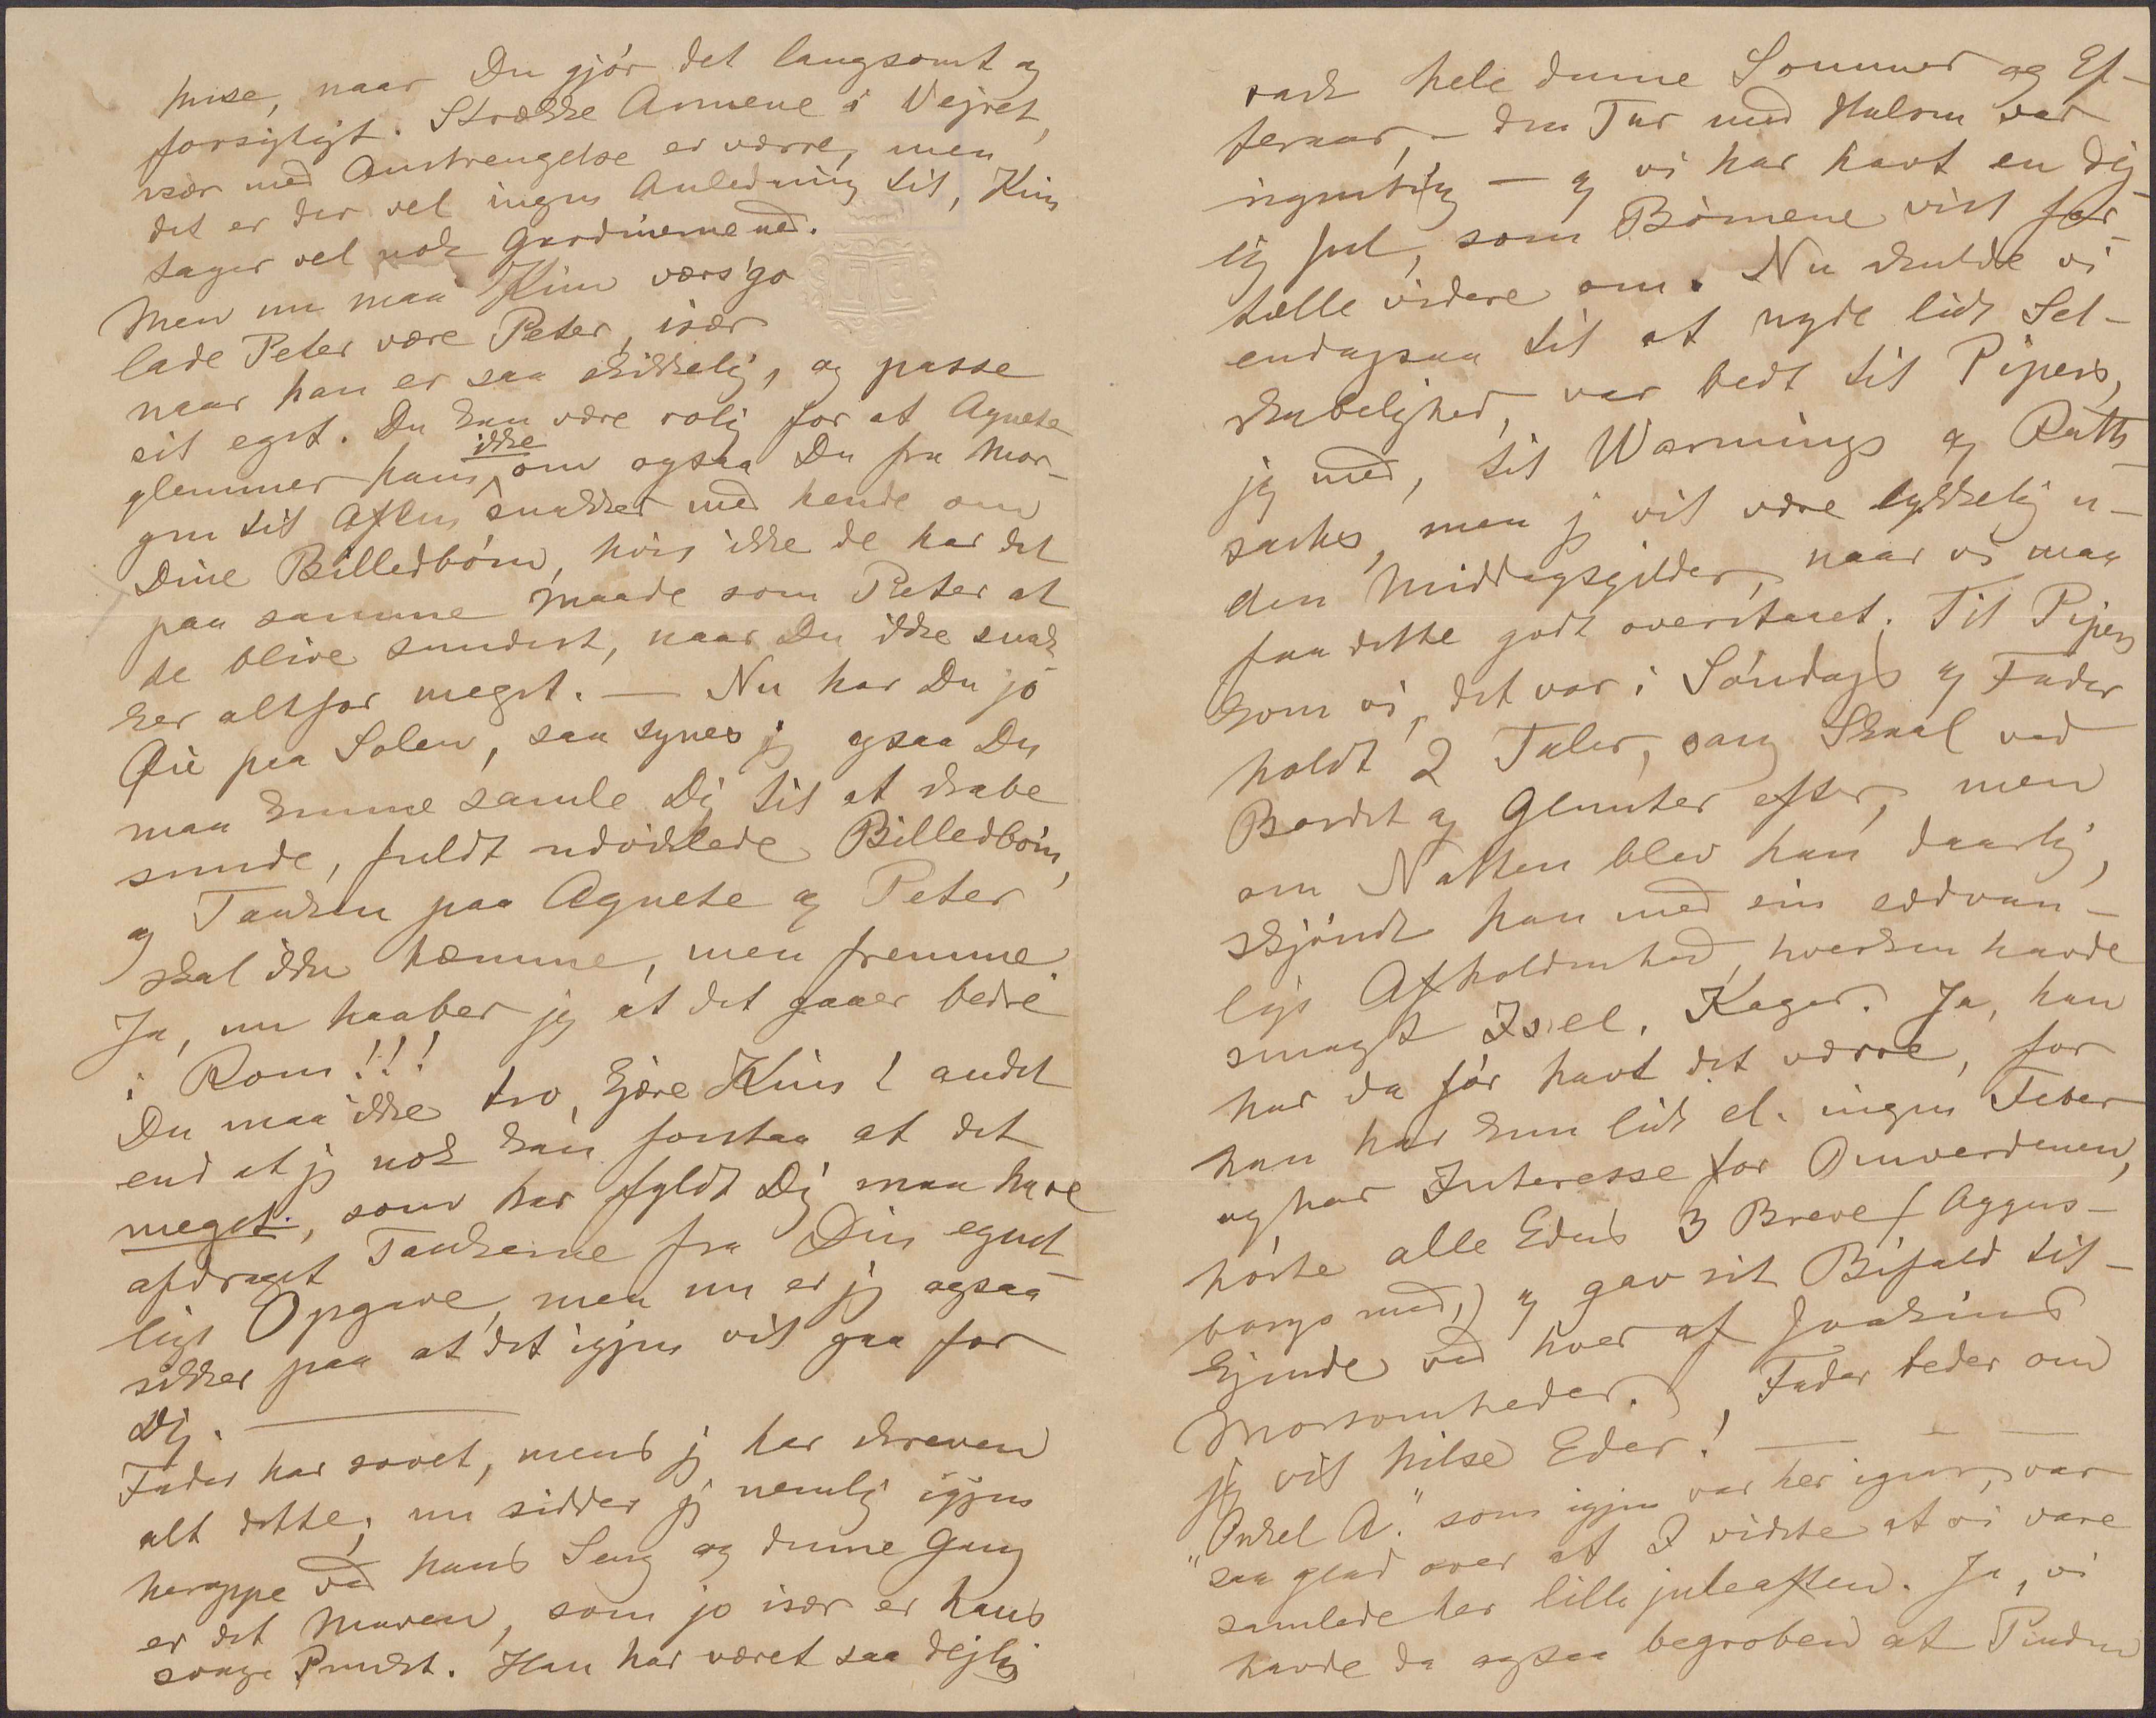 huse, naar Du gjör det langsomt og
forsigtigt. Strække Armene i Vejret,
især med Anstrengelse er værre, men
det er der vel ingen Anledning til, Kim
tager vel nok Gardinerne ned.
Men nu maa Kim værs'go
lade Peter være Peter, især
naar han er saa skikkelig, og passe
sit eget. Du kan være rolig for at Agnete
ikke
glemmer ham, om ogsaa Du fra Mor-
gen til Aften snakker med hende om
Dine Billedbörn, hvis ikke de har det
paa samme Maade som Peter at
de blive sundest, naar Du ikke snak
ker altfor meget. — Nu har Du jo
Öie paa Solen, saa synes jeg ogsaa Du
maa kunne samle Dig til at skabe
sunde, fuldt udviklede Billedbörn,
og Tanken paa Agnete og Peter
skal ikke hæmme, men fremme.
Ja, nu haaber jeg at det gaaer bedre
i Rom!!!
Du maa ikke tro, kjære Kim! andet
end at jeg nok kan forstaa at det
meget, som har fyldt Dig maa have
afdraget Tankerne fra Din egent
lige Opgave, men nu er jeg ogsaa
sikker paa at det igjen vil gaa for
Dig. —
Fader har sovet, mens jeg har skreven
alt dette; nu sidder jeg nemlig igjen
heroppe ved hans Seng og denne Gang
er det Maven, som jo især er hans
svage Punkt. Han har været saa dejlig
rask hele denne Sommer og Ef-
teraar, — den Tur med Halsen var
ingenting — og vi har havt en dej-
lig Jul, som Börnene vist for-
tælle videre om. Nu skulde vi
endogsaa til at nyde lidt Sel-
skabelighed, var bedt til Pipers,
jeg med, til Warmings og Rütt
sachs, men jeg vil være lykkelig u-
den Middagsgilder, naar vi maa
faa dette godt overstaaet. Til Pipers
kom vi, det var i Söndags og Fader
holdt 2 Taler, sang Skaal ved
Bordet og Glunter efter, men
om Natten blev han daarlig,
skjöndt han med sin sædvan-
lige Afholdenhed, hverken havde
smagt Is el. Kager. Ja, han
har da för havt det værre, for
han har kun lidt el. ingen Feber
og har Interesse for Omverdenen,
hörte alle Eders 3 Breve (Aggers-
borgs med,) og gav sit Bifald til-
kjende ved hver af Joakims
Morsomheder. Fader beder om
jeg vil hilse Eder! — — —
"Onkel A." som igjen var her igaar, var
saa glad over at I vidste at vi vare
samlede her lille juleaften. Ja, vi
havde da ogsaa begroben at Pinden